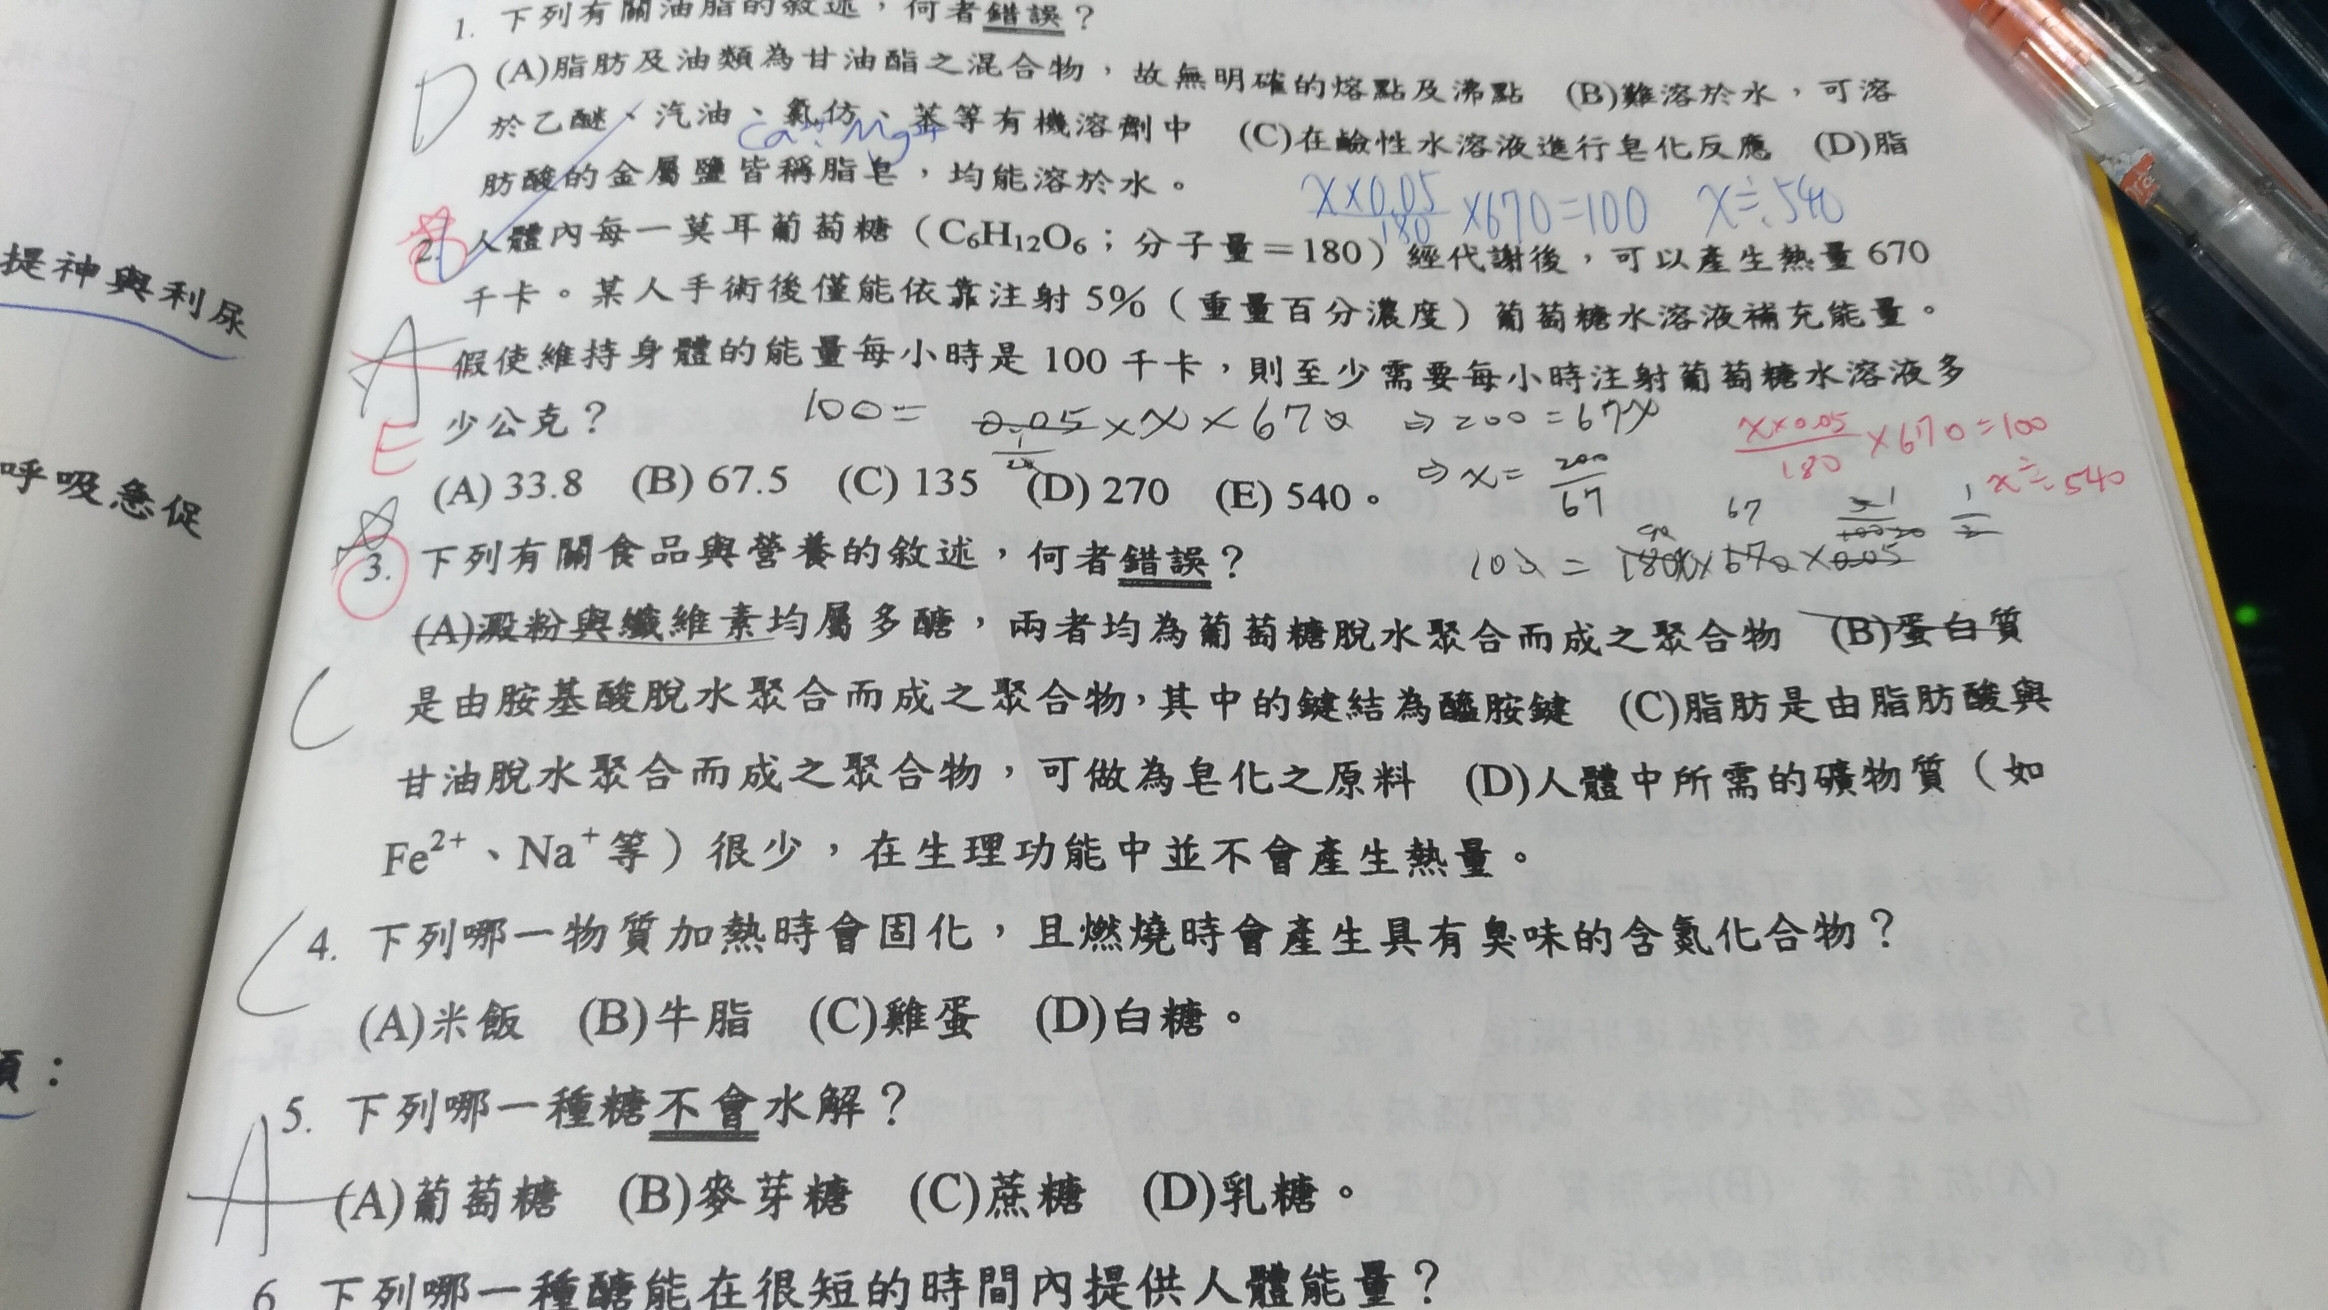 1. 下列有關油脂的敘述，何者錯誤？
D
(A)脂肪及油類為甘油酯之混合物，故無明確的熔點及沸點 (B)難溶於水，可溶
於乙醚、汽油、氯仿、苯等有機溶劑中 (C)在鹼性水溶液進行皂化反應 (D)脂
Ca²⁺. Mg²⁺
肪酸的金屬鹽皆稱脂皂，均能溶於水。
x×0.05/180 ×670=100 x≒540
2. 人體內每一莫耳葡萄糖（C₆H₁₂O₆；分子量＝180）經代謝後，可以產生熱量 670
千卡。某人手術後僅能依靠注射 5%（重量百分濃度）葡萄糖水溶液補充能量。
A
假使維持身體的能量每小時是 100 千卡，則至少需要每小時注射葡萄糖水溶液多
E
少公克？
100= 0.05 × x × 670 ⇒ 200 = 67x
x×0.05/180 ×670=100
⇒ x = 200/67
x≒540
(A) 33.8 (B) 67.5 (C) 135 (D) 270 (E) 540。
3. 下列有關食品與營養的敘述，何者錯誤？
(A)澱粉與纖維素均屬多醣，兩者均為葡萄糖脫水聚合而成之聚合物 (B)蛋白質
C
是由胺基酸脫水聚合而成之聚合物，其中的鍵結為醯胺鍵 (C)脂肪是由脂肪酸與
甘油脫水聚合而成之聚合物，可做為皂化之原料 (D)人體中所需的礦物質（如
Fe²⁺、Na⁺等）很少，在生理功能中並不會產生熱量。
C
4. 下列哪一物質加熱時會固化，且燃燒時會產生具有臭味的含氮化合物？
(A)米飯 (B)牛脂 (C)雞蛋 (D)白糖。
5. 下列哪一種糖不會水解？
A
(A)葡萄糖 (B)麥芽糖 (C)蔗糖 (D)乳糖。
6 下列哪一種醣能在很短的時間內提供人體能量？
提神與利尿
呼吸急促
：